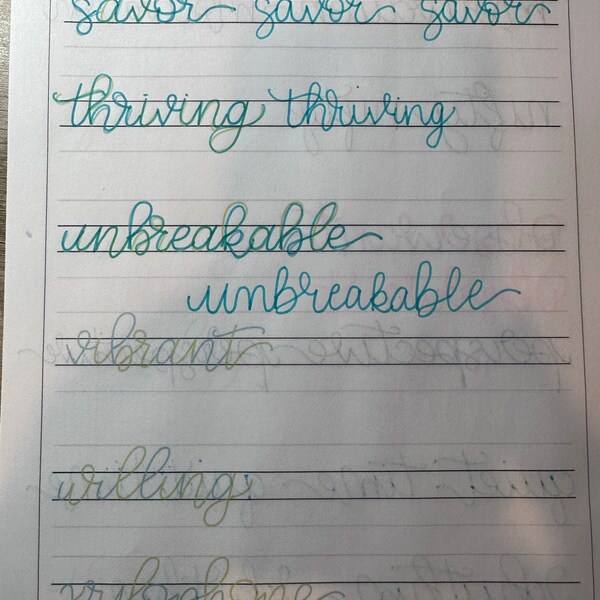 savor savor savor
thriving thriving
unbreakable
unbreakable
vibrant
willing
xylophone